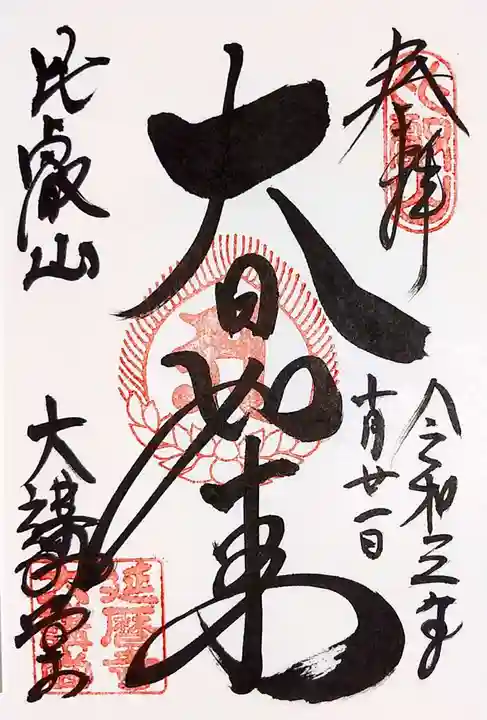 奉拝
令和三年
十月廿一日
大日如来
比叡山
大講堂
延暦寺
大講堂